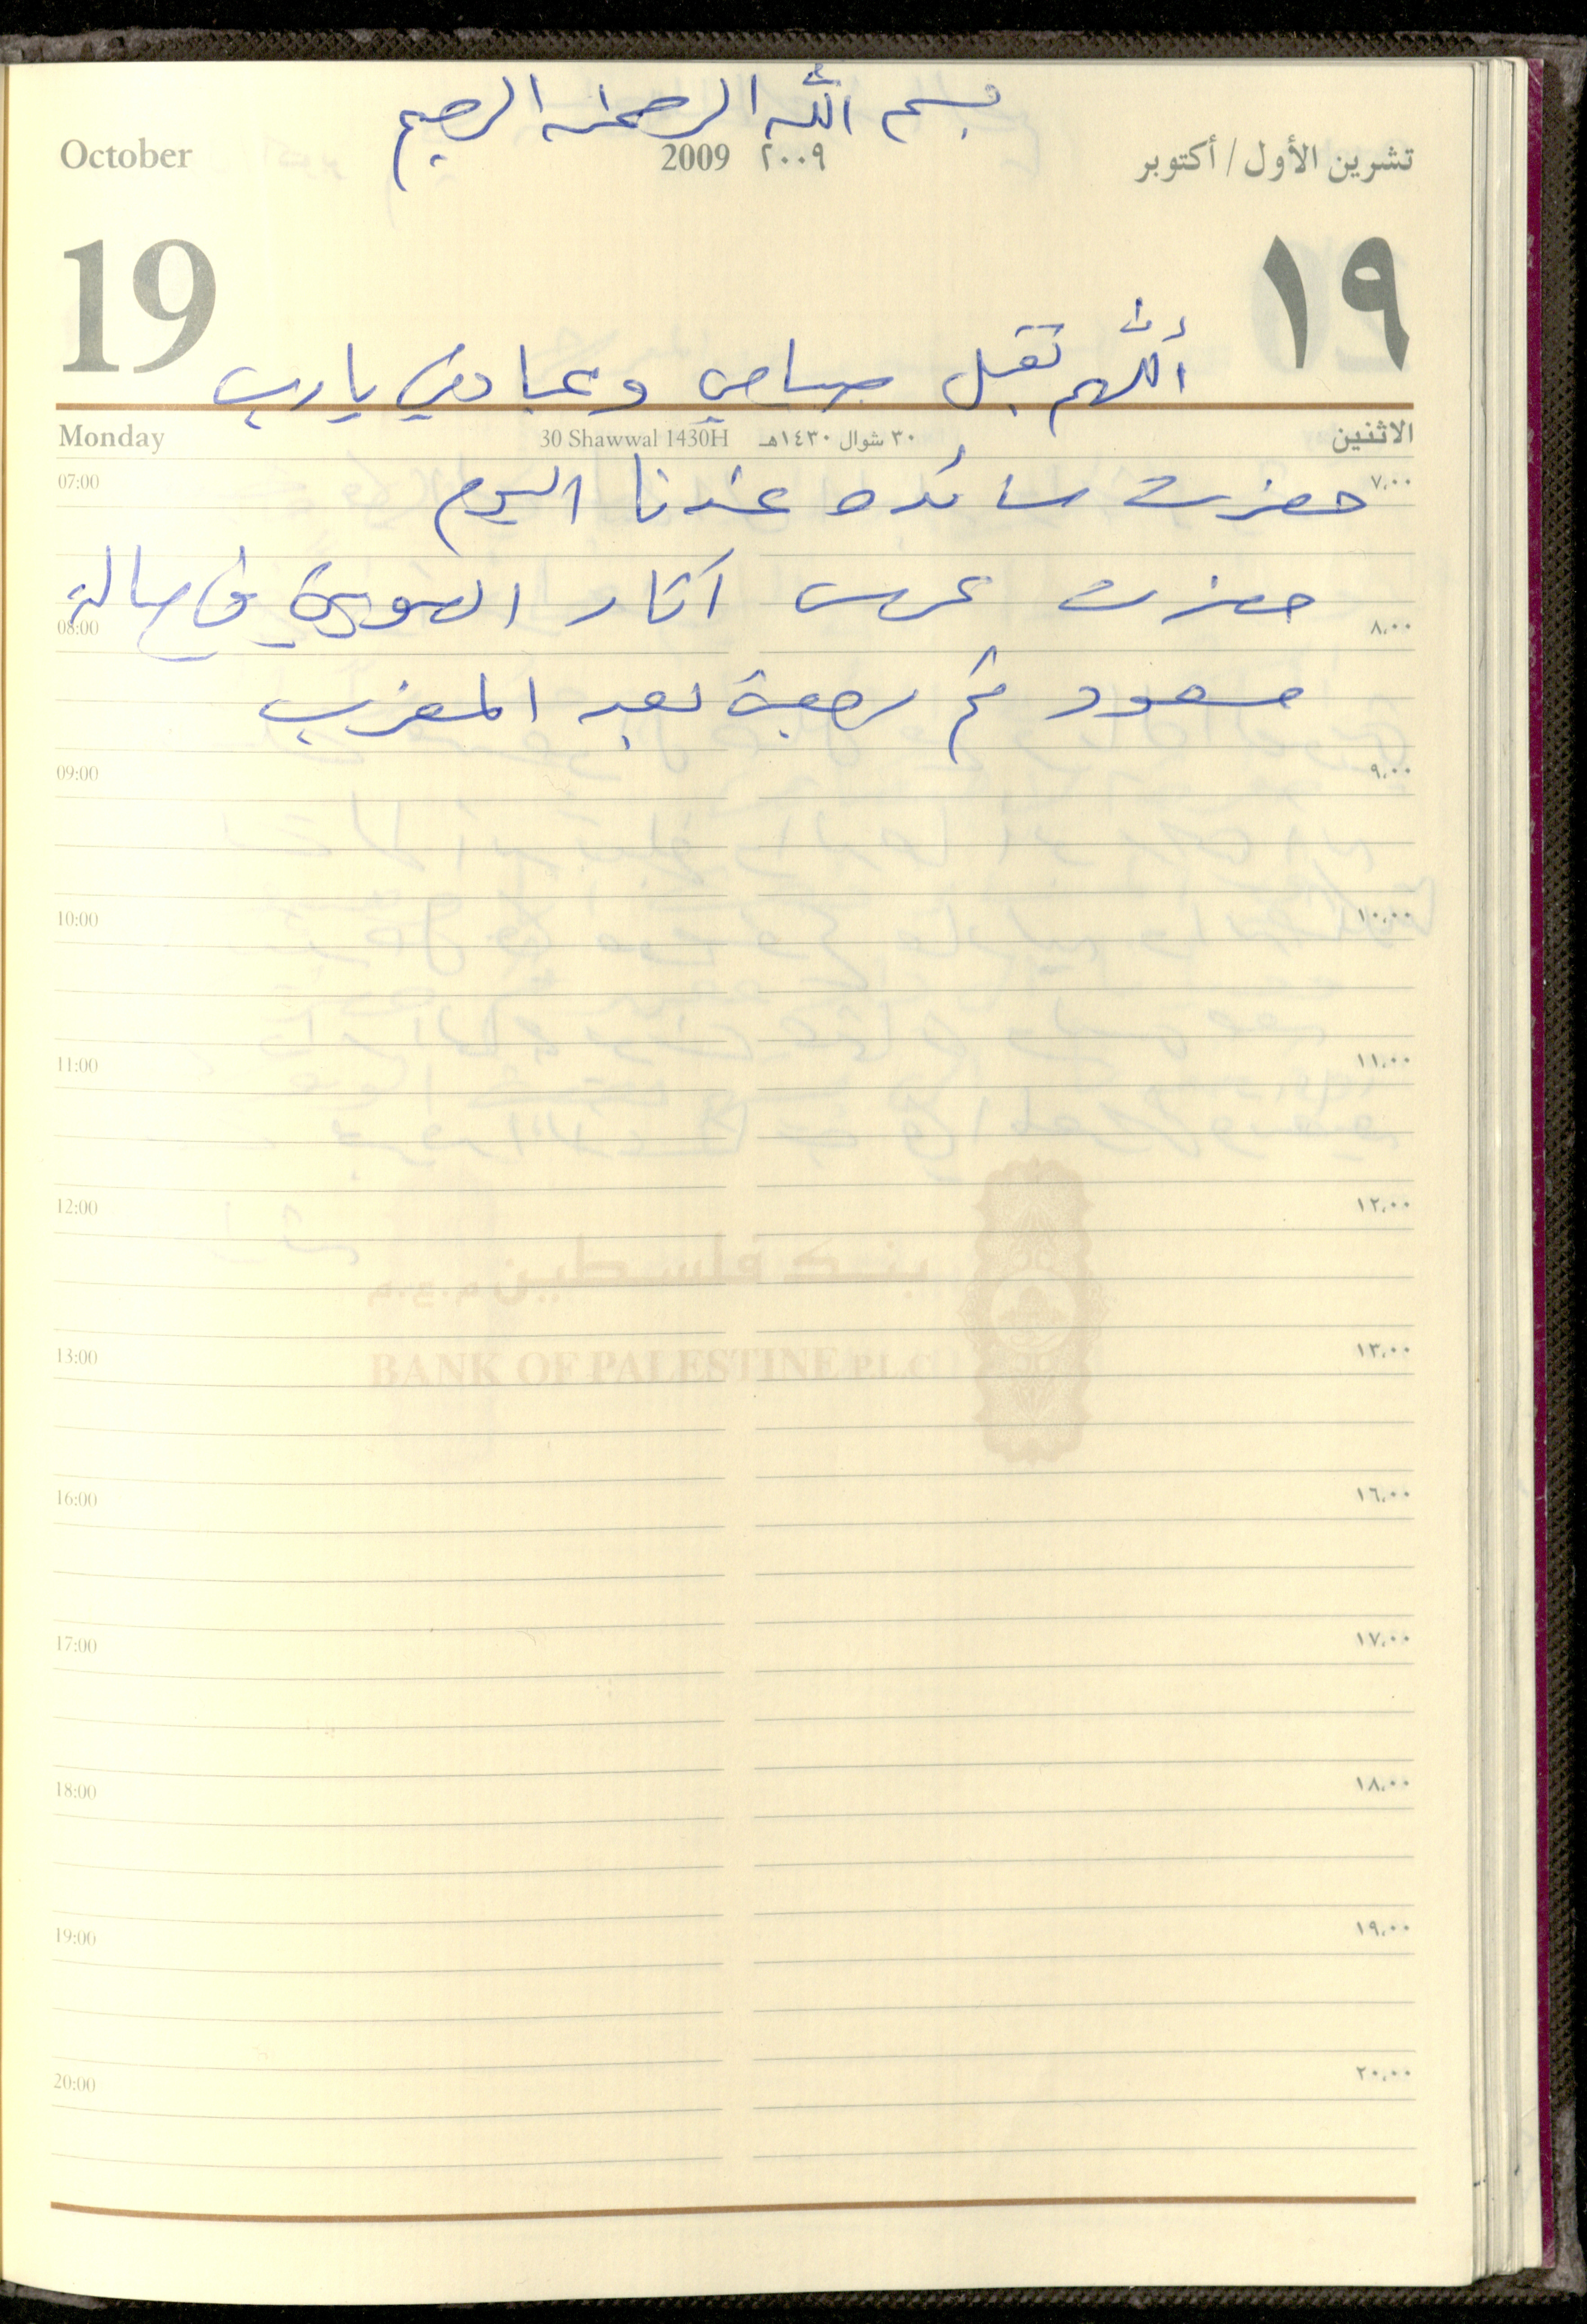 بسم الله الرحمن الرحيم
October 2009 ٢٠٠٩ تشرين الأول / أكتوبر
19 ١٩
أللهم تقبل صيامي وعبادتي يا رب
Monday 30 Shawwal 1430H ٣٠ شوال ١٤٣٠هـ الاثنين
07:00 ٧,٠٠
حضرت سائده عندنا اليوم
حضرت عرس آثار السويسي في صالة
08:00 ٨,٠٠
مسعود ثم رجعت بعد المغرب
09:00 ٩,٠٠
10:00 ١٠,٠٠
11:00 ١١,٠٠
12:00 ١٢,٠٠
بنك فلسطين م.ع.م
13:00 ١٣,٠٠
BANK OF PALESTINE P.L.C
16:00 ١٦,٠٠
17:00 ١٧,٠٠
18:00 ١٨,٠٠
19:00 ١٩,٠٠
20:00 ٢٠,٠٠